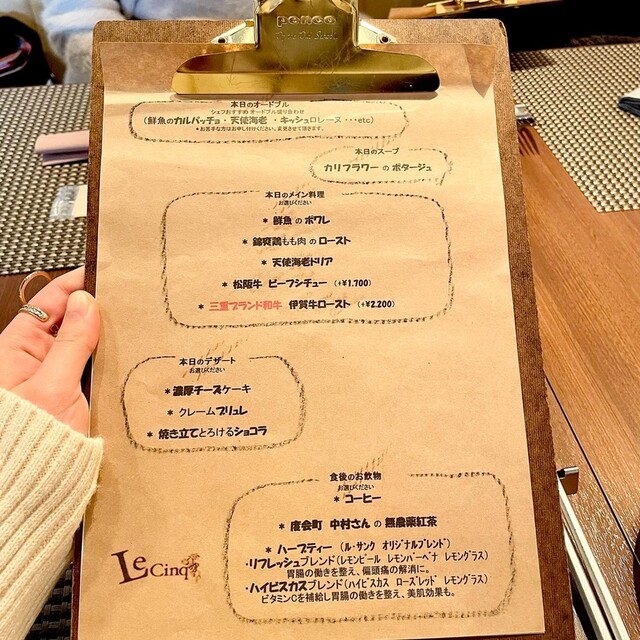 penco
本日のオードブル
シェフおすすめ オードブル盛り合わせ
(鮮魚のカルパッチョ・天使海老 ・キッシュロレーヌ・・・etc)
*お苦手な方はお申し付けください。変更させて頂きます。
本日のスープ
カリフラワー の ポタージュ
本日のメイン料理
お選びください
* 鮮魚 の ポワレ
* 錦爽鶏もも肉 の ロースト
* 天使海老ドリア
* 松阪牛 ビーフシチュー (+¥1.700)
* 三重ブランド和牛 伊賀牛ロースト (+¥2.200)
本日のデザート
お選びください
* 濃厚チーズケーキ
* クレームブリュレ
* 焼き立てとろけるショコラ
食後のお飲物
お選びください
* コーヒー
* 度会町 中村さん の 無農薬紅茶
* ハーブティー (ル・サンク オリジナルブレンド)
・リフレッシュブレンド(レモンピール レモンバーベナ レモングラス)
胃腸の働きを整え、偏頭痛の解消に。
・ハイビスカスブレンド(ハイビスカス ローズレッド レモングラス)
ビタミンCを補給し胃腸の働きを整え、美肌効果も。
Le Cinq